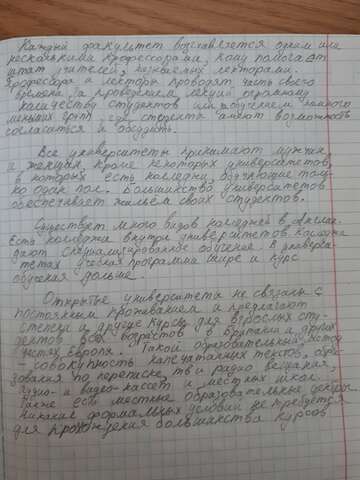 Каждый факультет возглавляется одним или
несколькими профессорами, кому помогает
штат учителей, называемых лекторами.
Профессора и лекторы проводят часть своего
времени за проведением лекций огромному
количеству студентов или обучением намного
меньших групп, где студенты имеют возможность
согласиться и обсудить.
Все университеты принимают мужчин
и женщин, кроме некоторых университетов,
в которых есть колледжи, обучающие толь-
ко один пол. Большинство университетов
обеспечивает жильем своих студентов.
Существует много видов колледжей в Англии.
Есть колледжи внутри университетов. Колледжи
дают специализированное обучение. В универси-
тетах учебная программа шире и курс
обучения дольше.
Открытые университета не связаны с
постоянным проживанием и предлагают
степени и другие курсы для взрослых сту-
дентов всех возрастов в Британии и других
частях Европы. Такой образовательный метод
- совокупность напечатанных текстов, обра-
зования по переписке, тв и радио вещания,
аудио- и видео-кассет и местных школ.
Также есть местные образовательные центры.
Никакие формальных условий не требуется
для прохождения большинства курсов